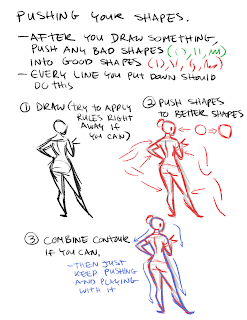 PUSHING YOUR SHAPES.
- AFTER YOU DRAW SOMETHING,
PUSH ANY BAD SHAPES
INTO GOOD SHAPES
- EVERY LINE YOU PUT DOWN SHOULD
DO THIS
① DRAW (TRY TO APPLY
RULES RIGHT
AWAY IF
YOU CAN)
② PUSH SHAPES
TO BETTER SHAPES
③ COMBINE CONTOUR
IF YOU CAN.
- THEN JUST
KEEP PUSHING
AND PLAYING
WITH IT